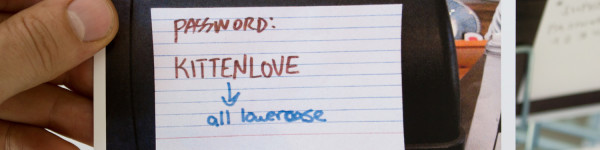 PASSWORD:
KITTENLOVE
↓
all lowercase